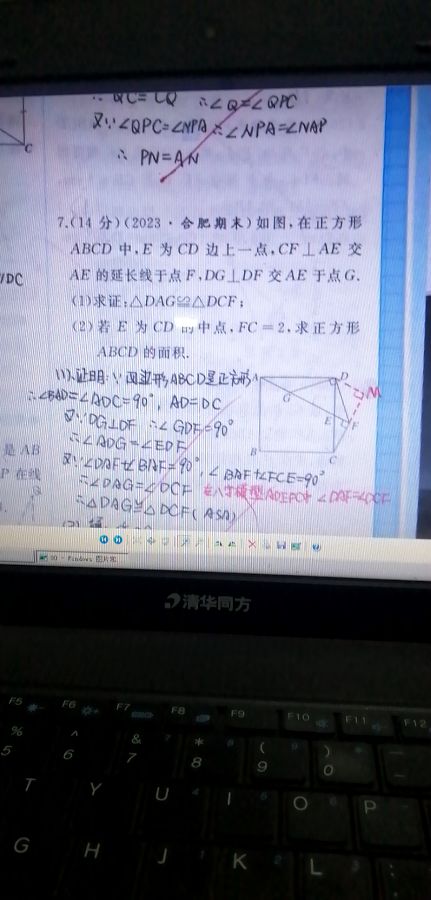 ∴ QC=CQ ∴∠Q=∠QPC
又∵∠QPC=∠NPA ∴∠NPA=∠NAP
∴ PN=AN
C
7.(14 分)(2023·合肥期末)如图,在正方形
ABCD 中,E 为 CD 边上一点,CF⊥AE 交
AE 的延长线于点 F,DG⊥DF 交 AE 于点 G.
(1)求证:△DAG≌△DCF;
(2)若 E 为 CD 的中点,FC=2,求正方形
ABCD 的面积.
/DC
(1)证明:∵四边形ABCD是正方形
∴∠BAD=∠ADC=90°, AD=DC
又∵DG⊥DF ∴∠GDF=90°
∴∠ADG=∠EDF
又∵∠DAF+∠BAF=90°, ∠BAF+∠FCE=90°
∴∠DAG=∠DCF
∴△DAG≌△DCF(ASA)
∠DAF=∠DCF
A
D
M
G
E
F
B
C
是 AB
P 在线
00 - Windows 图片和
清华同方
F5
F6
F7
F8
F9
F10
F11
F12
%
5
^
6
&
7
*
8
(
9
)
0
T
Y
U
I
O
P
G
H
J
K
L